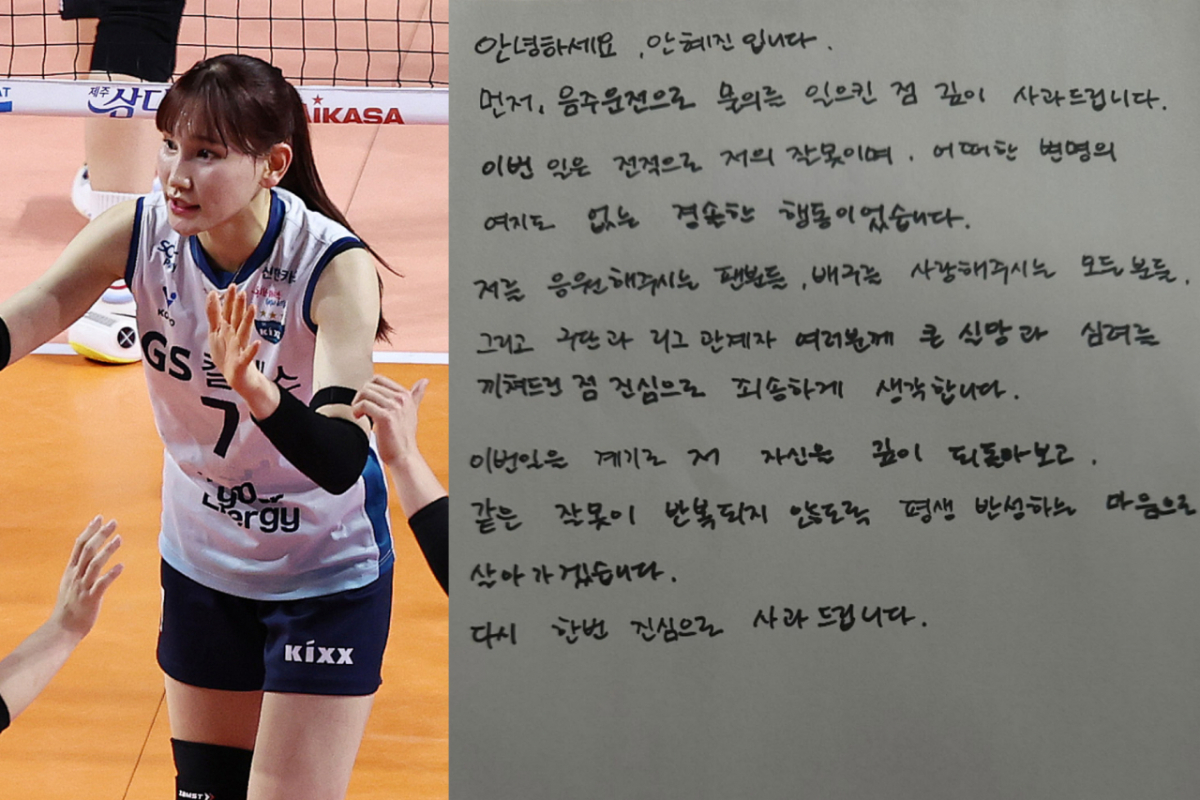 제주
삼다
MIKASA
신한카드
KOVO
KIXX
GS 칼텍스
7
Energy
KIXX
ZAMST
안녕하세요, 안혜진입니다.
먼저, 음주운전으로 물의를 일으킨 점 깊이 사과드립니다.
이번 일은 전적으로 저의 잘못이며, 어떠한 변명의
여지도 없는 경솔한 행동이었습니다.
저를 응원해주시는 팬분들, 배구를 사랑해주시는 모든 분들,
그리고 구단과 리그 관계자 여러분께 큰 실망과 심려를
끼쳐드린 점 진심으로 죄송하게 생각합니다.
이번일은 계기로 저 자신을 깊이 되돌아보고,
같은 잘못이 반복되지 않도록 평생 반성하는 마음으로
살아가겠습니다.
다시 한번 진심으로 사과드립니다.